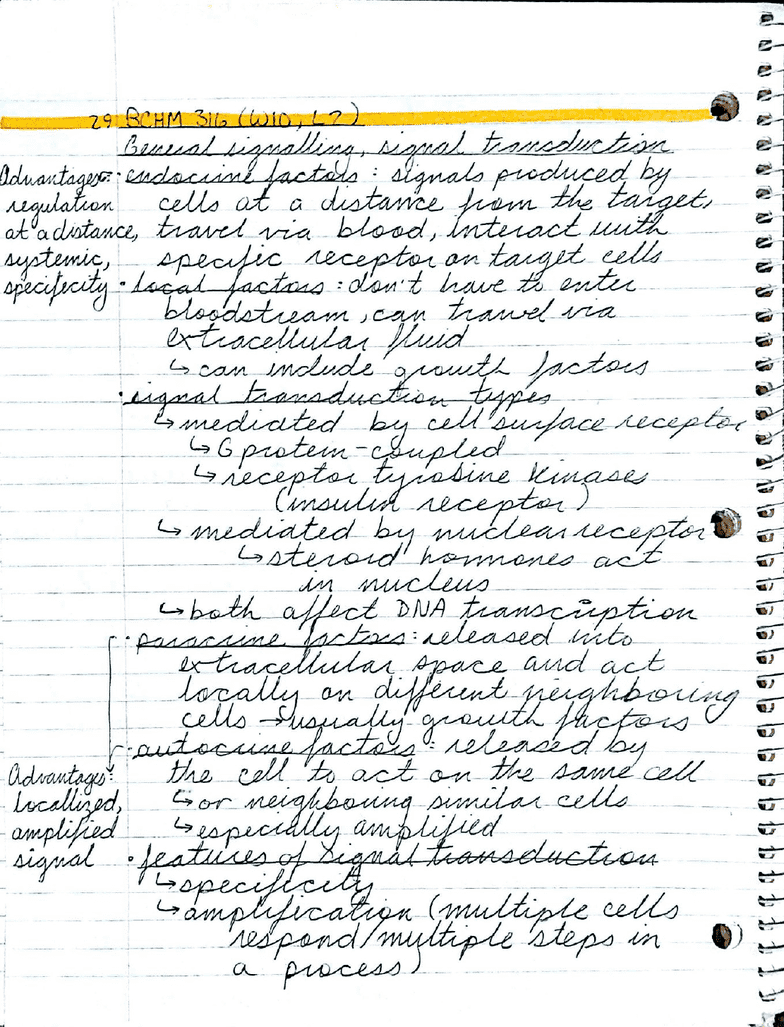 29 BCHM 316 (W10, L2)
General signalling, signal transduction
Advantages: • endocrine factors : signals produced by
regulation cells at a distance from the target,
at a distance, travel via blood, interact with
systemic, specific receptor on target cells
specificity • local factors : don't have to enter
bloodstream, can travel via
extracellular fluid
↳ can include growth factors
• signal transduction types
↳ mediated by cell surface receptor
↳ G protein-coupled
↳ receptor tyrosine kinases
(insulin receptor)
↳ mediated by nuclear receptor
↳ steroid hormones act
in nucleus
↳ both affect DNA transcription
• paracrine factors : released into
extracellular space and act
locally on different neighboring
cells → usually growth factors
• autocrine factors : released by
Advantages: the cell to act on the same cell
locallized, ↳ or neighbouring similar cells
amplified ↳ especially amplified
signal • features of signal transduction
↳ specificity
↳ amplification (multiple cells
respond/multiple steps in
a process)